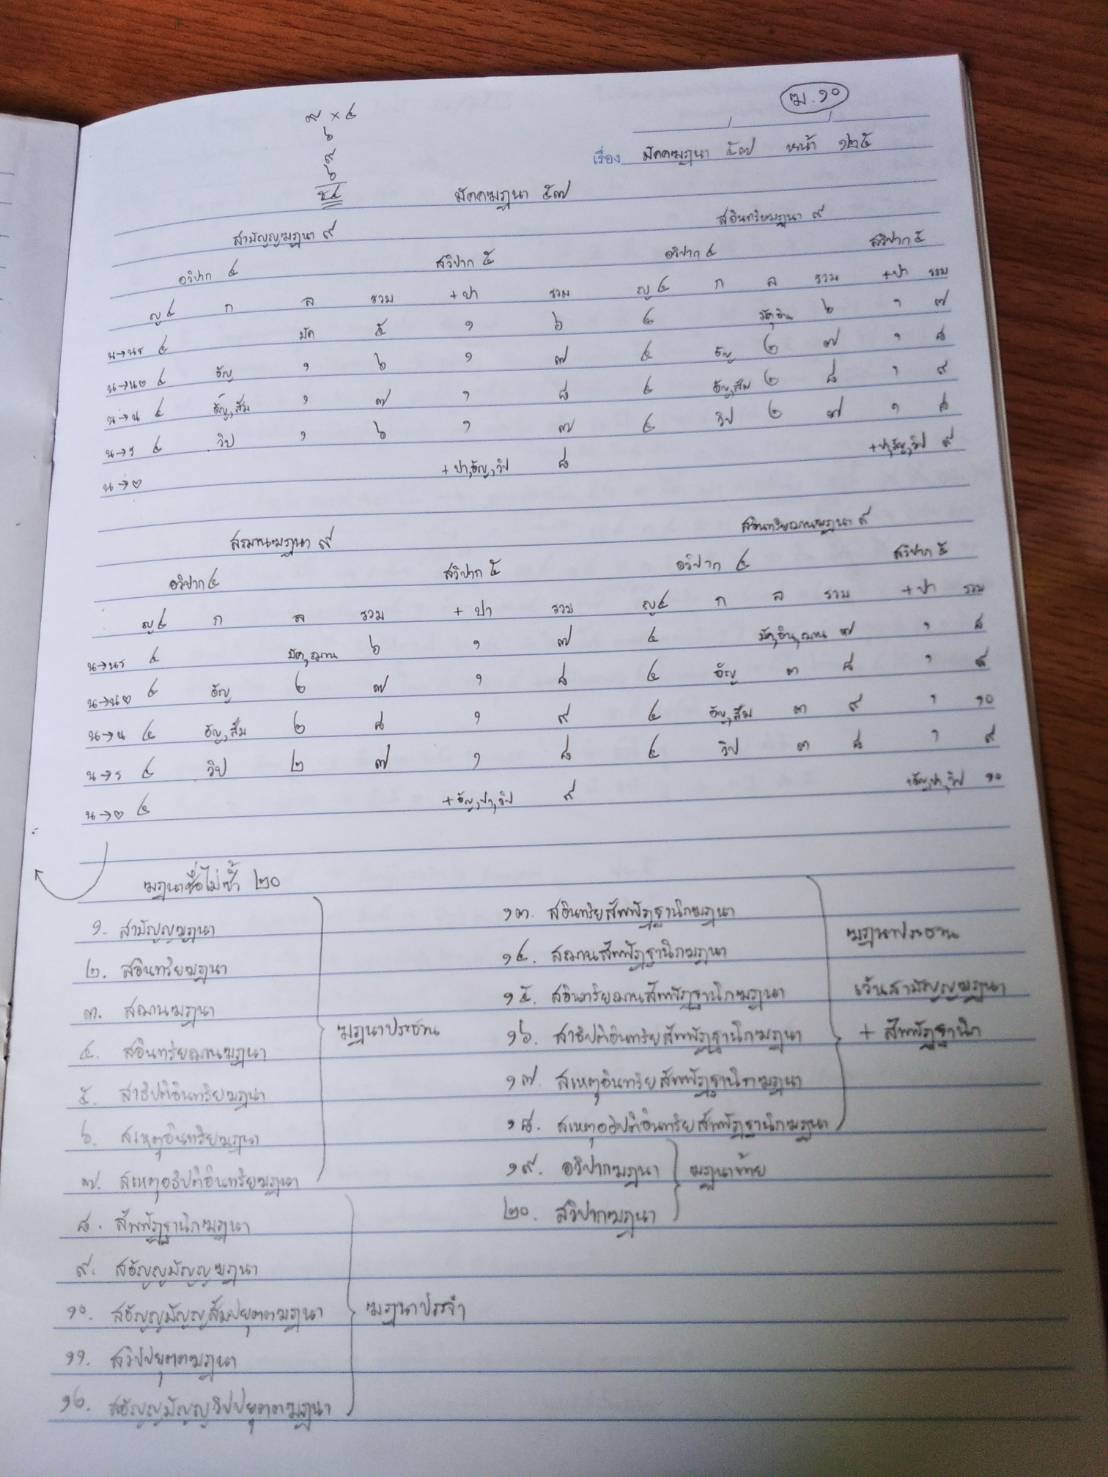 ฆ.๑๐
๙ × ๔
๖
๙
๖
๕๔
เรื่อง มัคคฆฏนา ๕๗ หน้า ๑๒๕
มัคคฆฏนา ๕๗
สามัญญฆฏนา ๙ สอินทริยฆฏนา ๙
อวิปาก ๔ สวิปาก ๕ อวิปาก ๔ สวิปาก ๕
ญ ๔ ก ล รวม +ปา รวม ญ ๔ ก ล รวม +ปา รวม
น→นร ๔ มัค ๕ ๑ ๖ ๔ มัค,อิน ๖ ๑ ๗
น→นอ ๔ อัญ ๑ ๖ ๑ ๗ ๔ อัญ ๒ ๗ ๑ ๘
น→น ๔ อัญ,สัม ๑ ๗ ๑ ๘ ๔ อัญ,สัม ๒ ๘ ๑ ๙
น→ร ๔ วิป ๑ ๖ ๑ ๗ ๔ วิป ๒ ๗ ๑ ๘
น→๓ +ปา,อัญ,วิป ๘ +ปา,อัญ,วิป ๙
สฌานฆฏนา ๙ สอินทริยฌานฆฏนา ๙
อวิปาก ๔ สวิปาก ๕ อวิปาก ๔ สวิปาก ๕
ญ ๔ ก ล รวม +ปา รวม ญ ๔ ก ล รวม +ปา รวม
น→นร ๔ มัค,ฌาน ๖ ๑ ๗ ๔ มัค,อิน,ฌาน ๗ ๑ ๘
น→นอ ๔ อัญ ๒ ๗ ๑ ๘ ๔ อัญ ๓ ๘ ๑ ๙
น→น ๔ อัญ,สัม ๒ ๘ ๑ ๙ ๔ อัญ,สัม ๓ ๙ ๑ ๑๐
น→ร ๔ วิป ๒ ๗ ๑ ๘ ๔ วิป ๓ ๘ ๑ ๙
น→๓ ๔ +อัญ,ปา,วิป ๙ +อัญ,ปา,วิป ๑๐
ฆฏนาชื่อไม่ซ้ำ ๒๐
๑. สามัญญฆฏนา
๒. สอินทริยฆฏนา
๓. สฌานฆฏนา
๔. สอินทริยฌานฆฏนา
๕. สาธิปติอินทริยฆฏนา
๖. สเหตุอินทริยฆฏนา
๗. สเหตุอธิปติอินทริยฆฏนา
ฆฏนาประธาน
๘. สัพพัฏฐานิกฆฏนา
๙. สอัญญมัญญฆฏนา
๑๐. สอัญญมัญญสัมปยุตตฆฏนา
๑๑. สวิปปยุตตฆฏนา
๑๒. สอัญญมัญญวิปปยุตตฆฏนา
ฆฏนาประจำ
๑๓. สอินทริยสัพพัฏฐานิกฆฏนา
๑๔. สฌานสัพพัฏฐานิกฆฏนา
๑๕. สอินทริยฌานสัพพัฏฐานิกฆฏนา
๑๖. สาธิปติอินทริยสัพพัฏฐานิกฆฏนา
๑๗. สเหตุอินทริยสัพพัฏฐานิกฆฏนา
๑๘. สเหตุอธิปติอินทริยสัพพัฏฐานิกฆฏนา
ฆฏนาประธาน
เว้นสามัญญฆฏนา
+ สัพพัฏฐานิก
๑๙. อวิปากฆฏนา
๒๐. สวิปากฆฏนา
ฆฏนาท้าย